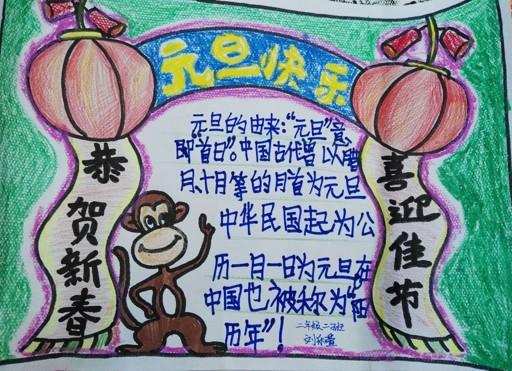 元旦快乐
恭贺新春
元旦的由来:“元旦”意
即“首日”。中国古代曾以腊
月、十月等的月首为元旦
中华民国起为公
历一月一日为元旦在
中国也被称为“阳
历年”!
二年级二班
喜迎佳节